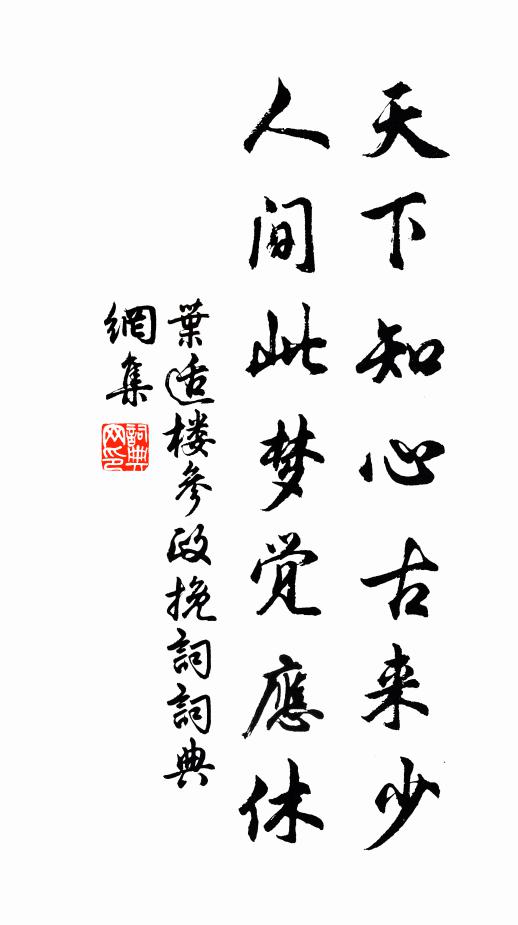 天下知心古来少
人间此梦觉應休
葉适楼參政挽詞詞典
網集
詞典
网印